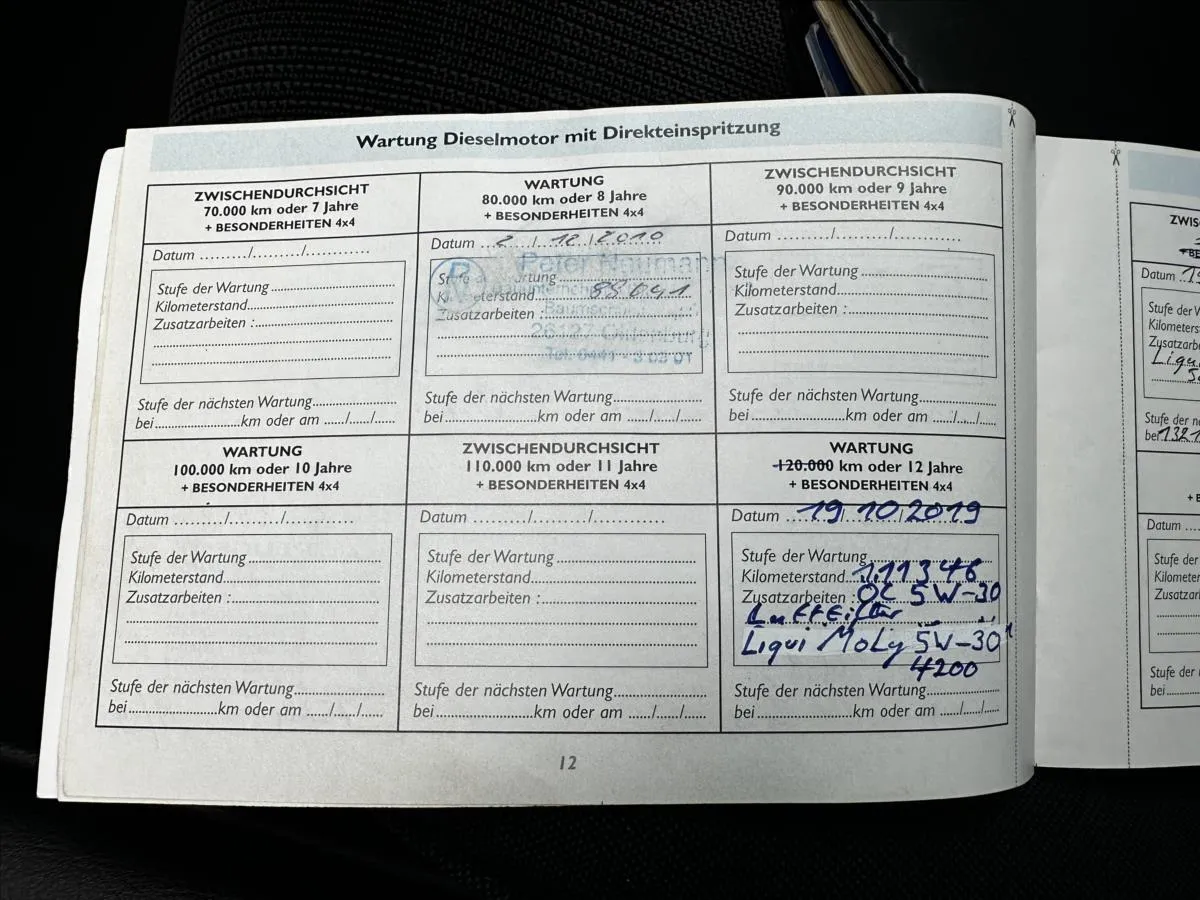 Wartung Dieselmotor mit Direkteinspritzung
ZWISCHENDURCHSICHT
70.000 km oder 7 Jahre
+ BESONDERHEITEN 4x4
Datum ........./........./............
Stufe der Wartung
Kilometerstand
Zusatzarbeiten :
Stufe der nächsten Wartung
bei km oder am ...../...../.....
WARTUNG
80.000 km oder 8 Jahre
+ BESONDERHEITEN 4x4
Datum 2/12/2010
Peter Naumann
Kilometerstand 88041
Zusatzarbeiten :
26127 Oldenburg
Stufe der nächsten Wartung
bei km oder am ...../...../.....
ZWISCHENDURCHSICHT
90.000 km oder 9 Jahre
+ BESONDERHEITEN 4x4
Datum ........./........./............
Stufe der Wartung
Kilometerstand
Zusatzarbeiten :
Stufe der nächsten Wartung
bei km oder am ...../...../.....
WARTUNG
100.000 km oder 10 Jahre
+ BESONDERHEITEN 4x4
Datum ........./........./............
Stufe der Wartung
Kilometerstand
Zusatzarbeiten :
Stufe der nächsten Wartung
bei km oder am ...../...../.....
ZWISCHENDURCHSICHT
110.000 km oder 11 Jahre
+ BESONDERHEITEN 4x4
Datum ........./........./............
Stufe der Wartung
Kilometerstand
Zusatzarbeiten :
Stufe der nächsten Wartung
bei km oder am ...../...../.....
WARTUNG
120.000 km oder 12 Jahre
+ BESONDERHEITEN 4x4
Datum 19 10 2019
Stufe der Wartung
Kilometerstand 111346
Zusatzarbeiten : OC 5W-30
Luftfilter
Liqui Moly 5W-30
4200
Stufe der nächsten Wartung
bei km oder am ...../...../.....
12
ZWIS
Datum
Stufe der W
Kilometers
Zusatzarbe
Liqu
Stufe der n
bei 1321
Datum
Stufe der
Kilomete
Zusatzar
Stufe der
bei